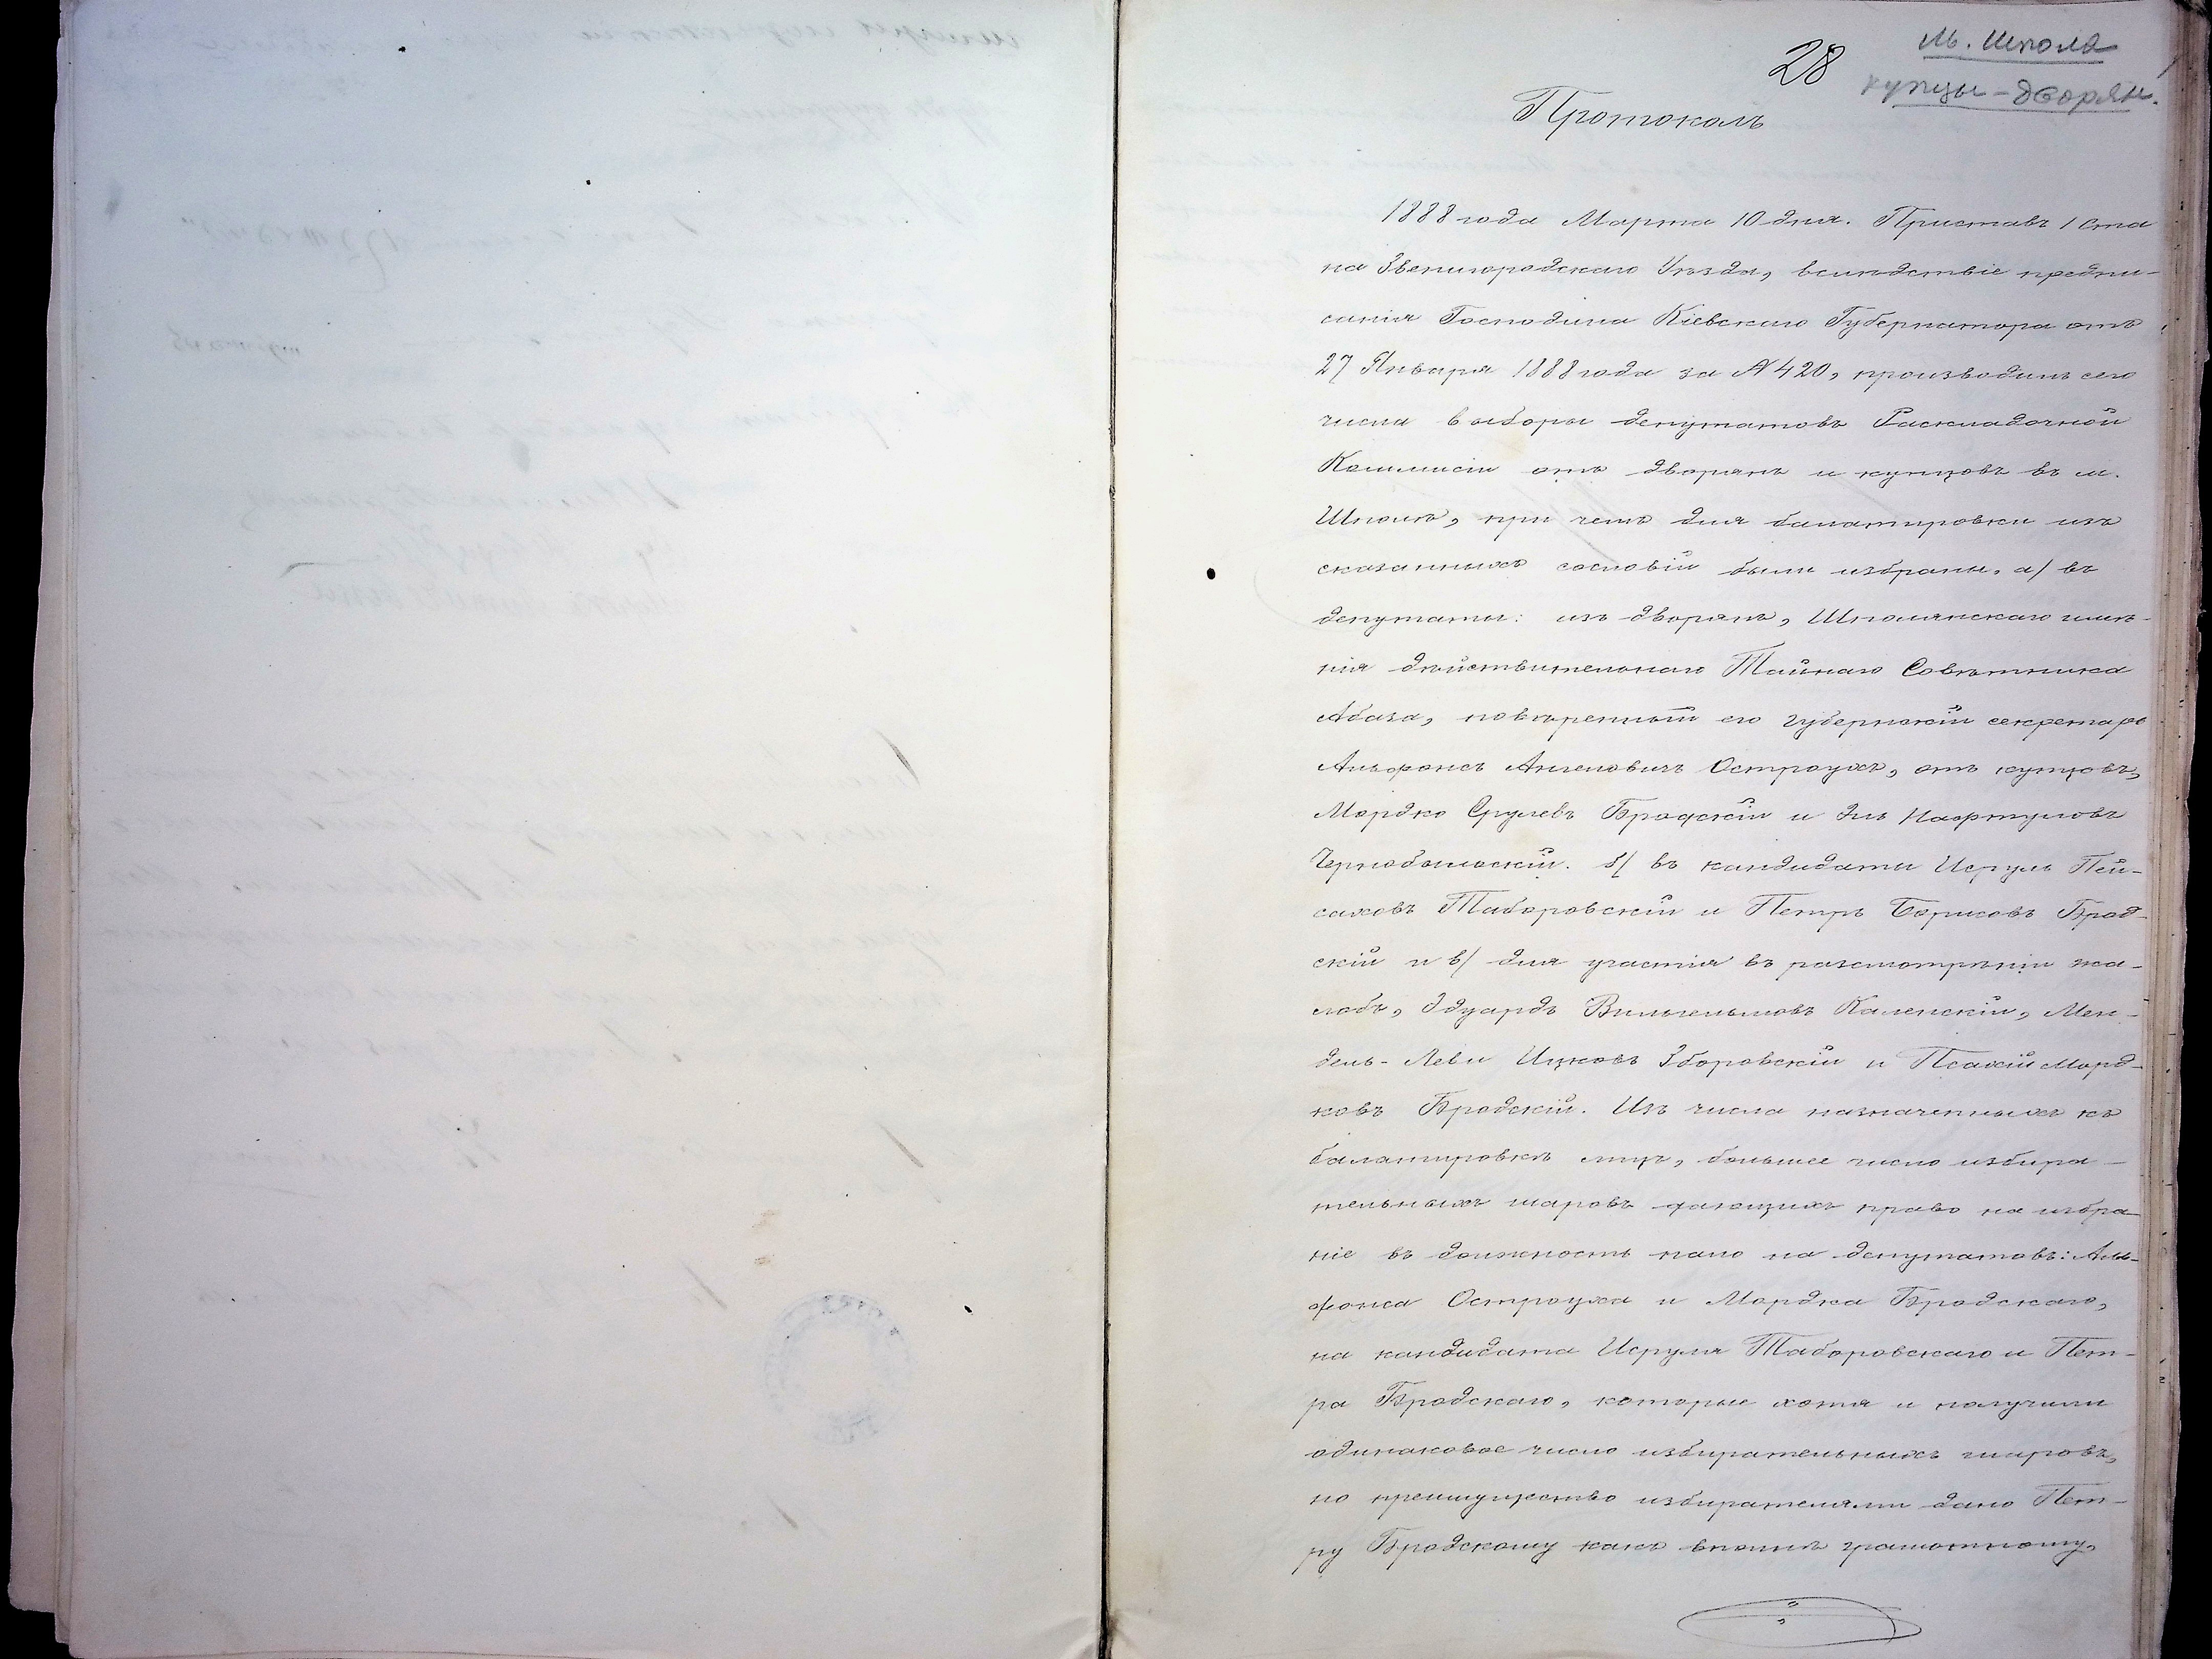 28
м. Шпола
купцы - дворян.
Протоколъ
1888 года Марта 10 дня. Приставъ 1 Ста
на Звенигородскаго Уѣзда, вслѣдствіе предпи-
санія Господина Кіевскаго Губернатора отъ
27 Января 1888 года за № 420, производилъ сего
числа выборы депутатовъ Раскладочной
Коммисіи отъ дворянъ и купцовъ въ м.
Шполѣ, при чемъ для балатировки изъ
сказанныхъ сословій были избраны, а/ въ
депутаты: изъ дворянъ, Шполянскаго имѣ-
нія дѣйствительнаго Тайнаго Совѣтника
Абаза, повѣренный его губернскій секретарь
Альфонсъ Ангеловичъ Остроухъ, отъ купцовъ,
Мордко Срулевъ Бродскій и Эль Нафтуловъ
Чернобыльскій. б/ въ кандидаты Исруль Пей-
саховъ Таборовскій и Петръ Борисовъ Брод-
скій и в/ для участія въ разсмотрѣніи жа-
лобъ, Эдуардъ Вильгельмовъ Каленскій, Мен-
дель-Леви Ицковъ Зборовскій и Псахій Морд-
ковъ Бродскій. Изъ числа назначенныхъ къ
балатировкѣ лицъ, большее число избира-
тельныхъ шаровъ дающихъ право на избра-
ніе въ должность пало на депутатовъ: Аль-
фонса Остроуха и Мордка Бродскаго,
на кандидата Исруля Таборовскаго и Пет-
ра Бродскаго, которые хотя и получили
одинаковое число избирательныхъ шаровъ,
но преимущество избирателями дано Пет-
ру Бродскому какъ вполнѣ грамотному,